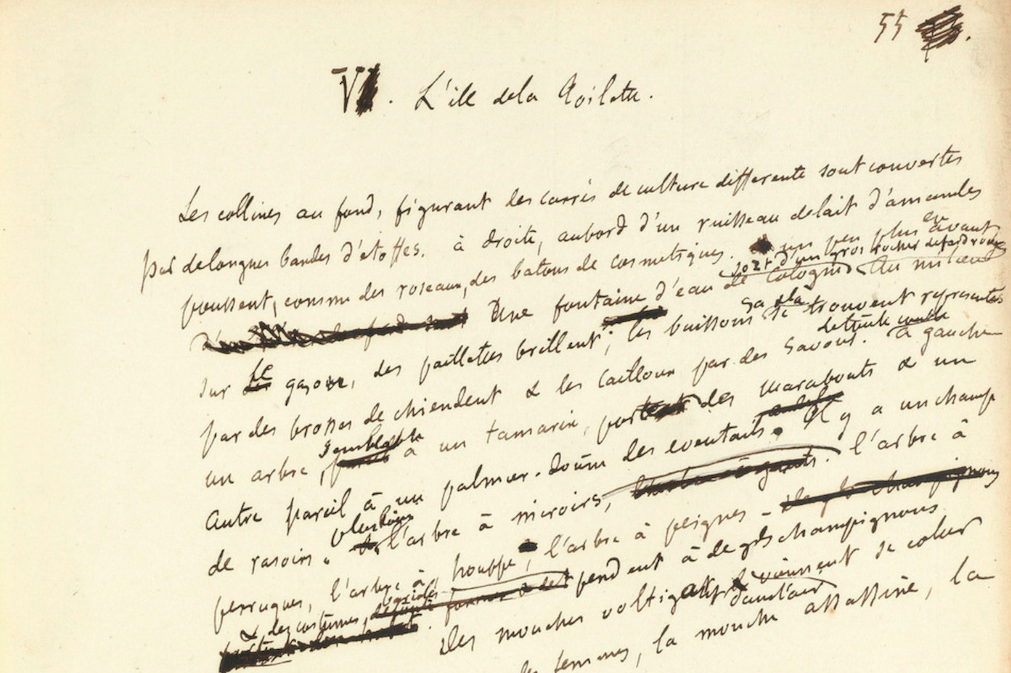 55
VI. L'ile dela Toilette.
Les collines au fond, figurant des carrés de culture differente sont couvertes
par de longues bandes d'étoffes. à droite, aubord d'un ruisseau de lait d'amandes
poussent, comme des roseaux, des batons de cosmetiques. un peu plus en avant
sort d'un gros rocher de fard rouge
Une fontaine d'eau de Cologne Au milieu
sur le gazon, des paillettes brillent; les buissons se trouvent representés
par des brosses de chiendent & les cailloux par des savons. à gauche
un arbre, semblable à un tamarin, porte des marabouts & un
autre pareil à un palmier-doum des eventails. Il y a un champ
de rasoirs. plus loin l'arbre à miroirs, l'arbre à
perruques, l'arbre à houppe, l'arbre à peignes -
& des costumes, pendent à de gds champignons
Des mouches voltigent & viennent se coller
dans l'air
femmes, la mouche assassine, la